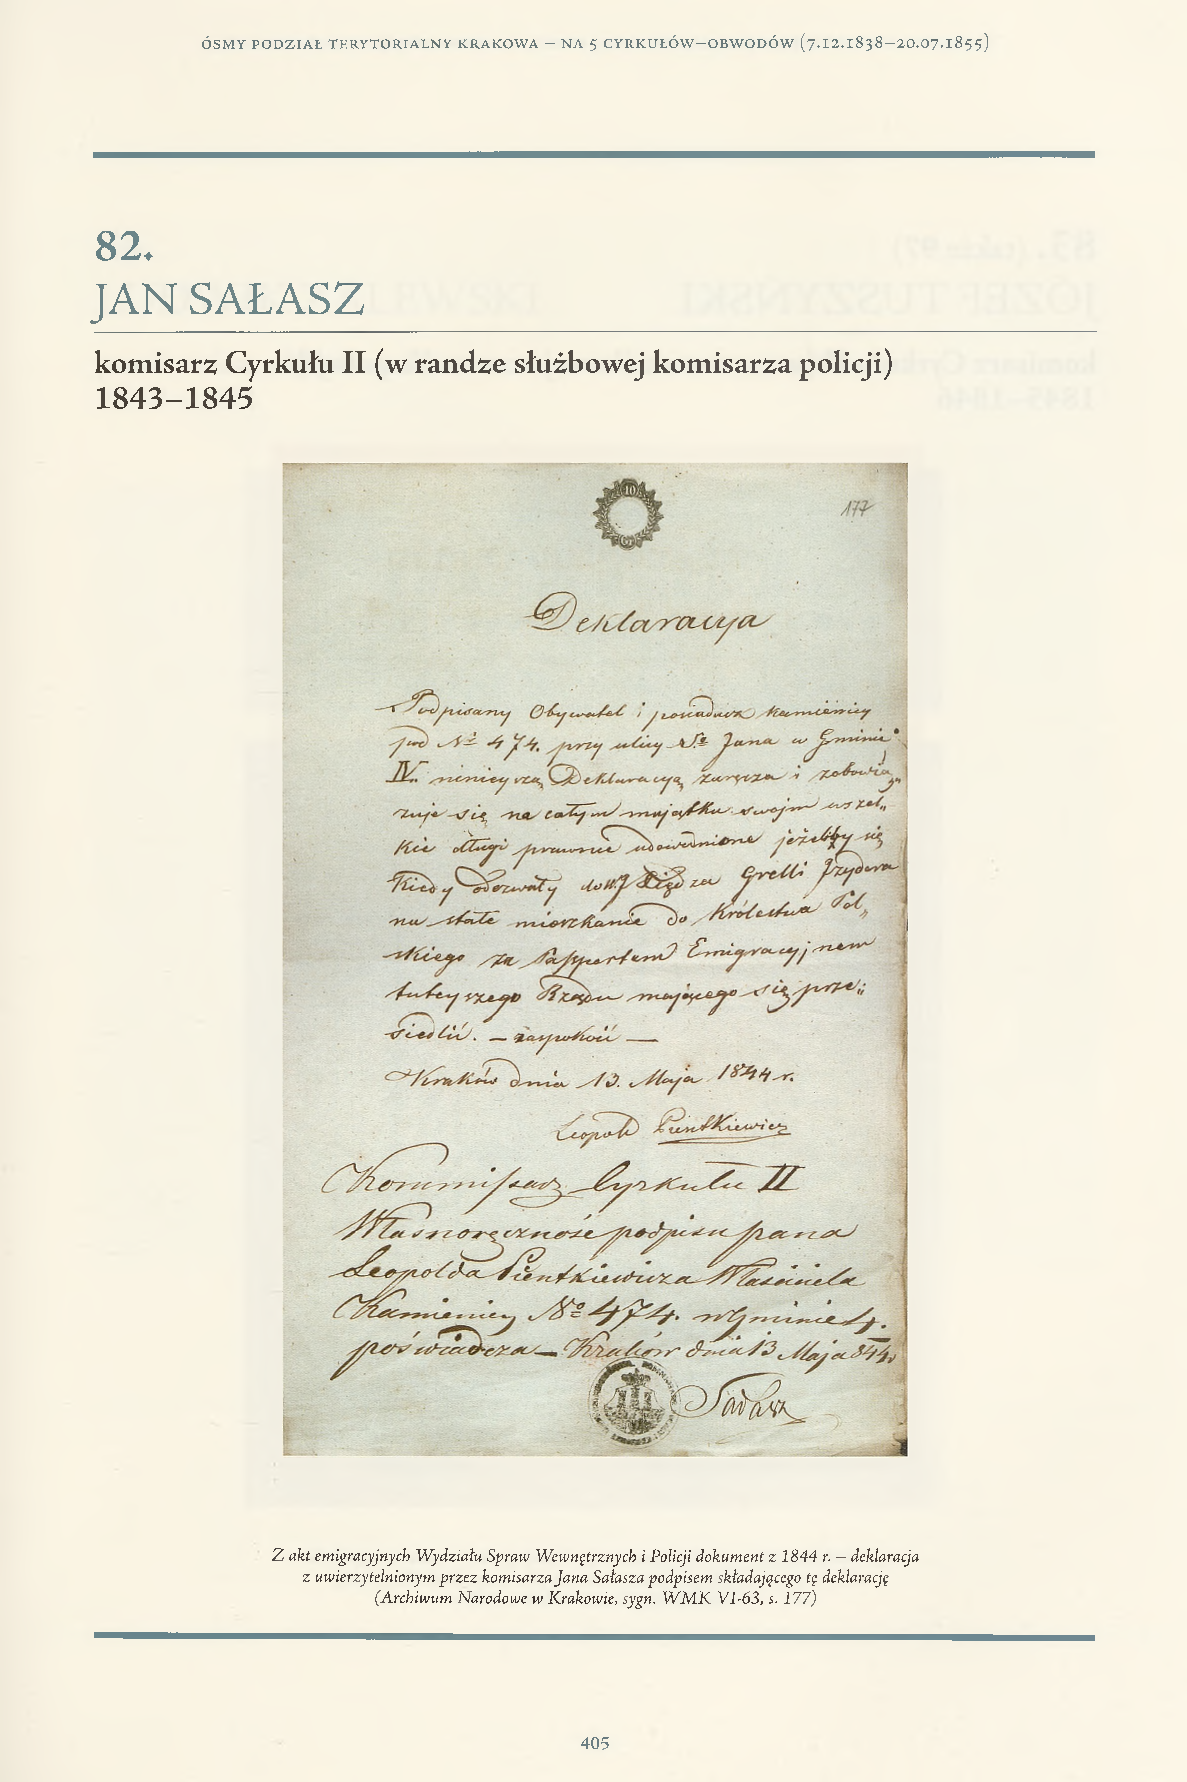 ÓSMY PODZIAŁ TERYTORIALNY KRAKOWA – NA 5 CYRKUŁÓW–OBWODÓW (7.12.1838–20.07.1855)
82.
JAN SAŁASZ
komisarz Cyrkułu II (w randze służbowej komisarza policji)
1843–1845
10
Gr
177
Deklaracyja
Podpisany Obywatel i posiadacz kamienicy
pod No 474. przy ulicy So Jana w Gminie
IV. niniejszą Deklaracyją zaręcza i zobowią„
zuje się na całym majątku swojm wszel„
kie długi prawnie udowodnione jeżeliby się
kiedy odezwały do Xiędza Grelli Izydora
na stałe mieszkanie do Królestwa Pol„
skiego za Passportem Emigracyjnem
tuteyszego Rządu mającego się prze„
siedlić. – zaspokoić —
Kraków dnia 13. Maja 1844 r.
Leopold Pientkiewicz
Kommissarz Cyrkułu II
Własnoręczność podpisu pana
Leopolda Pientkiewicza Właściciela
Kamienicy No 474. w Gminie 4.
poświadcza – Kraków dnia 13 Maja 844
Sałasz
Z akt emigracyjnych Wydziału Spraw Wewnętrznych i Policji dokument z 1844 r. – deklaracja
z uwierzytelnionym przez komisarza Jana Sałasza podpisem składającego tę deklarację
(Archiwum Narodowe w Krakowie, sygn. WMK VI-63, s. 177)
405